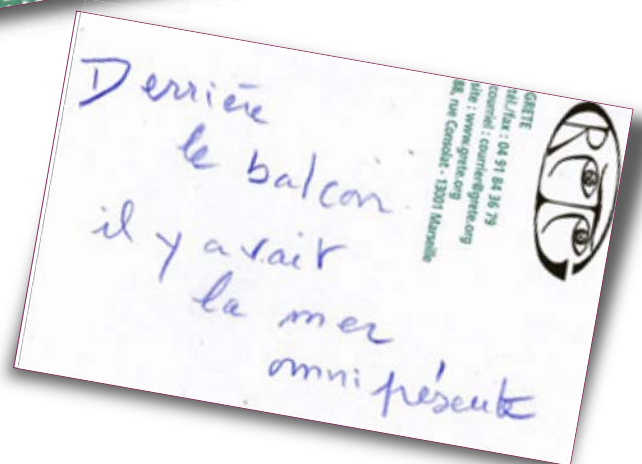 Derrière
le balcon
il y avait
la mer
omniprésente
GRETE
tél./fax : 04 91 84 36 79
courriel : courrier@grete.org
site : www.grete.org
88, rue Consolat - 13001 Marseille